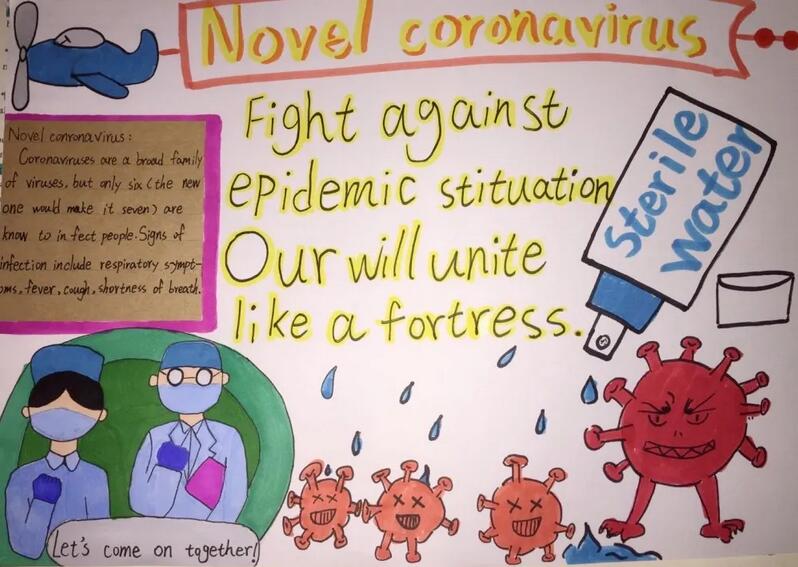 Novel coronavirus
Fight against
epidemic stituation
Our will unite
like a fortress.
Novel conronavirus:
Coronaviruses are a broad family
of viruses, but only six (the new
one would make it seven) are
know to in fect people. Signs of
infection include respiratory sympt-
oms, fever, cough, shortness of breath.
Sterile
Water
Let's come on together!